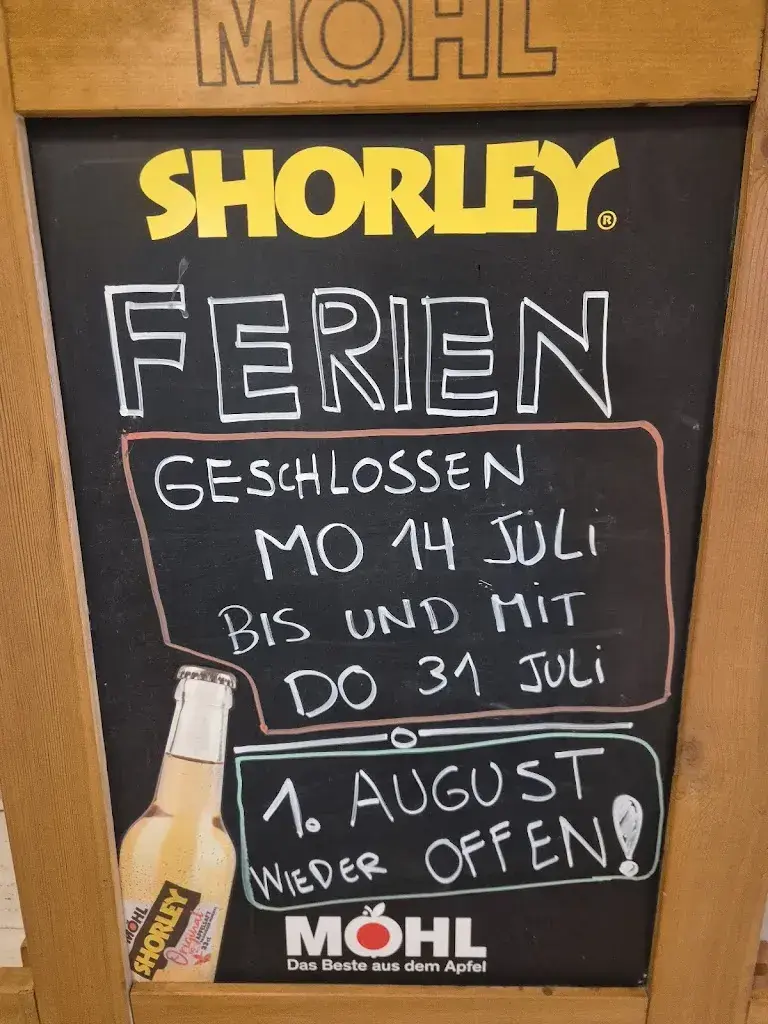 MÖHL
SHORLEY®
FERIEN
GESCHLOSSEN
MO 14 JULI
BIS UND MIT
DO 31 JULI
1. AUGUST
WIEDER OFFEN!
MÖHL
SHORLEY
Original
MÖHL
Das Beste aus dem Apfel